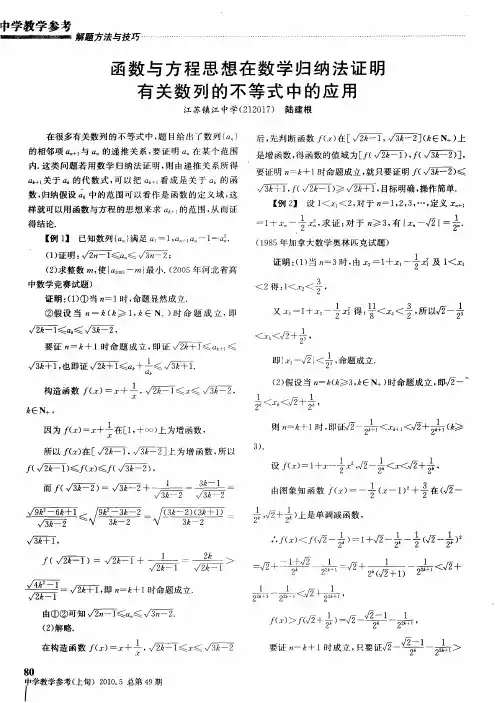 中学教学参考
解题方法与技巧
函数与方程思想在数学归纳法证明
有关数列的不等式中的应用
江苏镇江中学(212017) 陆建根
在很多有关数列的不等式中,题目给出了数列{aₙ}
的相邻项aₙ₊₁与aₙ的递推关系,要证明aₙ在某个范围
内.这类问题若用数学归纳法证明,则由递推关系所得
aₖ₊₁关于aₖ的代数式,可以把aₖ₊₁看成是关于aₖ的函
数,归纳假设aₖ中的范围可以看作是函数的定义域,这
样就可以用函数与方程的思想来求aₖ₊₁的范围,从而证
得结论.
【例1】 已知数列{aₙ}满足a₁=1,aₙ₊₁aₙ-1=aₙ².
(1)证明:√(2n-1)≤aₙ≤√(3n-2);
(2)求整数m,使|a₂₀₀₅-m|最小.(2005年河北省高
中数学竞赛试题)
证明:(1)①当n=1时,命题显然成立.
②假设当n=k(k≥1,k∈N₊)时命题成立,即
√(2k-1)≤aₖ≤√(3k-2),
要证n=k+1时命题成立,即证√(2k+1)≤aₖ₊₁≤
√(3k+1),也即证√(2k+1)≤aₖ+1/aₖ≤√(3k+1).
构造函数f(x)=x+1/x,√(2k-1)≤x≤√(3k-2),
k∈N₊,
因为f(x)=x+1/x在[1,+∞)上为增函数,
所以f(x)在[√(2k-1),√(3k-2)]上为增函数,所以
f(√(2k-1))≤f(x)≤f(√(3k-2)),
而f(√(3k-2))=√(3k-2)+1/√(3k-2)=(3k-1)/√(3k-2)=
√(9k²-6k+1)/√(3k-2)≤√((9k²-3k-2)/(3k-2))=√((3k-2)(3k+1)/(3k-2))=
√(3k+1),
f(√(2k-1))=√(2k-1)+1/√(2k-1)=2k/√(2k-1)>
√(4k²-1)/√(2k-1)=√(2k+1),即n=k+1时命题成立.
由①②可知√(2n-1)≤aₙ≤√(3n-2).
(2)解略.
在构造函数f(x)=x+1/x,√(2k-1)≤x≤√(3k-2)
后,先判断函数f(x)在[√(2k-1),√(3k-2)](k∈N₊)上
是增函数,得函数的值域为[f(√(2k-1)),f(√(3k-2))],
要证明n=k+1时命题成立,就只要证明f(√(3k-2))≤
√(3k+1),f(√(2k-1))≥√(2k+1),目标明确,操作简单.
【例2】 设1<x₁<2,对于n=1,2,3,⋯,定义xₙ₊₁
=1+xₙ-1/2xₙ²,求证:对于n≥3,有|xₙ-√2|=1/2ⁿ.
(1985年加拿大数学奥林匹克试题)
证明:(1)当n=3时,由x₂=1+x₁-1/2x₁²及1<x₁
<2得:1<x₂<3/2,
又x₃=1+x₂-1/2x₂²得:11/8<x₃<3/2,所以√2-1/2³
<x₃<√2+1/2³,
即|x₃-√2|<1/2³,命题成立.
(2)假设当n=k(k≥3,k∈N₊)时命题成立,即√2-
1/2ᵏ<xₖ<√2+1/2ᵏ,
则n=k+1时,即证√2-1/2ᵏ⁺¹<xₖ₊₁<√2+1/2ᵏ⁺¹(k≥
3).
设f(x)=1+x-1/2x²,√2-1/2ᵏ<x<√2+1/2ᵏ,
由图象知函数f(x)=-1/2(x-1)²+3/2在(√2-
1/2ᵏ,√2+1/2ᵏ)上是单调减函数,
∴f(x)<f(√2-1/2ᵏ)=1+√2-1/2ᵏ-1/2(√2-1/2ᵏ)²
=√2+(-1+√2)/2ᵏ-1/2²ᵏ⁺¹=√2+1/(2ᵏ(√2+1))-1/2²ᵏ⁺¹<√2+
1/2ᵏ⁺¹-1/2²ᵏ⁺¹<√2+1/2ᵏ⁺¹,
f(x)>f(√2+1/2ᵏ)=√2-(√2-1)/2ᵏ-1/2²ᵏ⁺¹,
要证n=k+1时成立,只要证√2-(√2-1)/2ᵏ-1/2²ᵏ⁺¹>
80
中学教学参考(上旬) 2010.5 总第49期